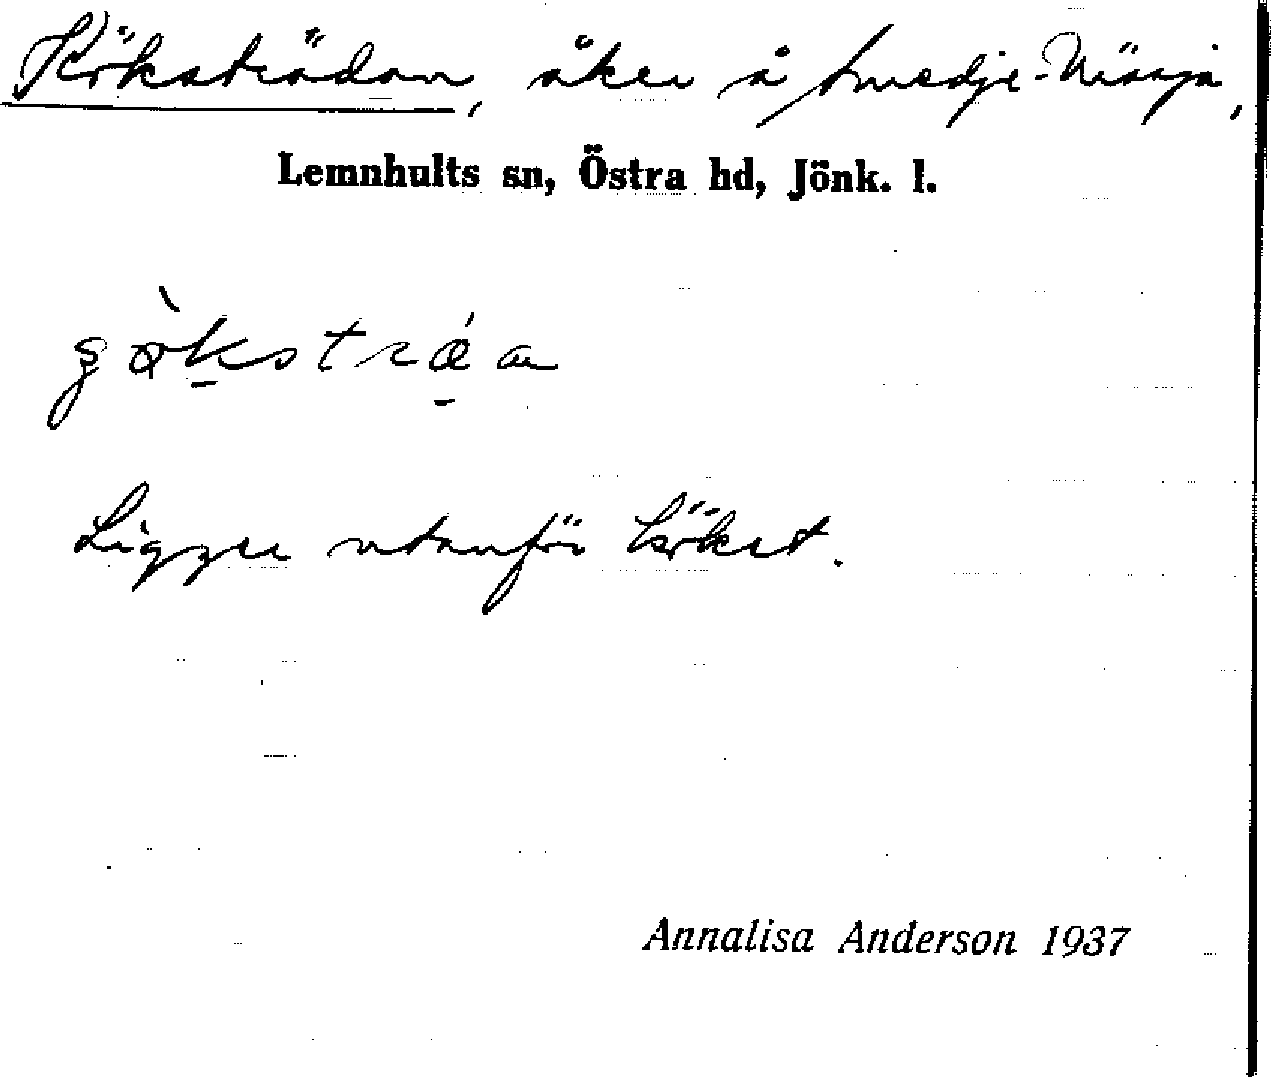 Köksträdan, åker å Smedje-Näsja,
Lemnhults sn, Östra hd, Jönk. l.
Ligger utanför köket.
Annalisa Anderson 1937